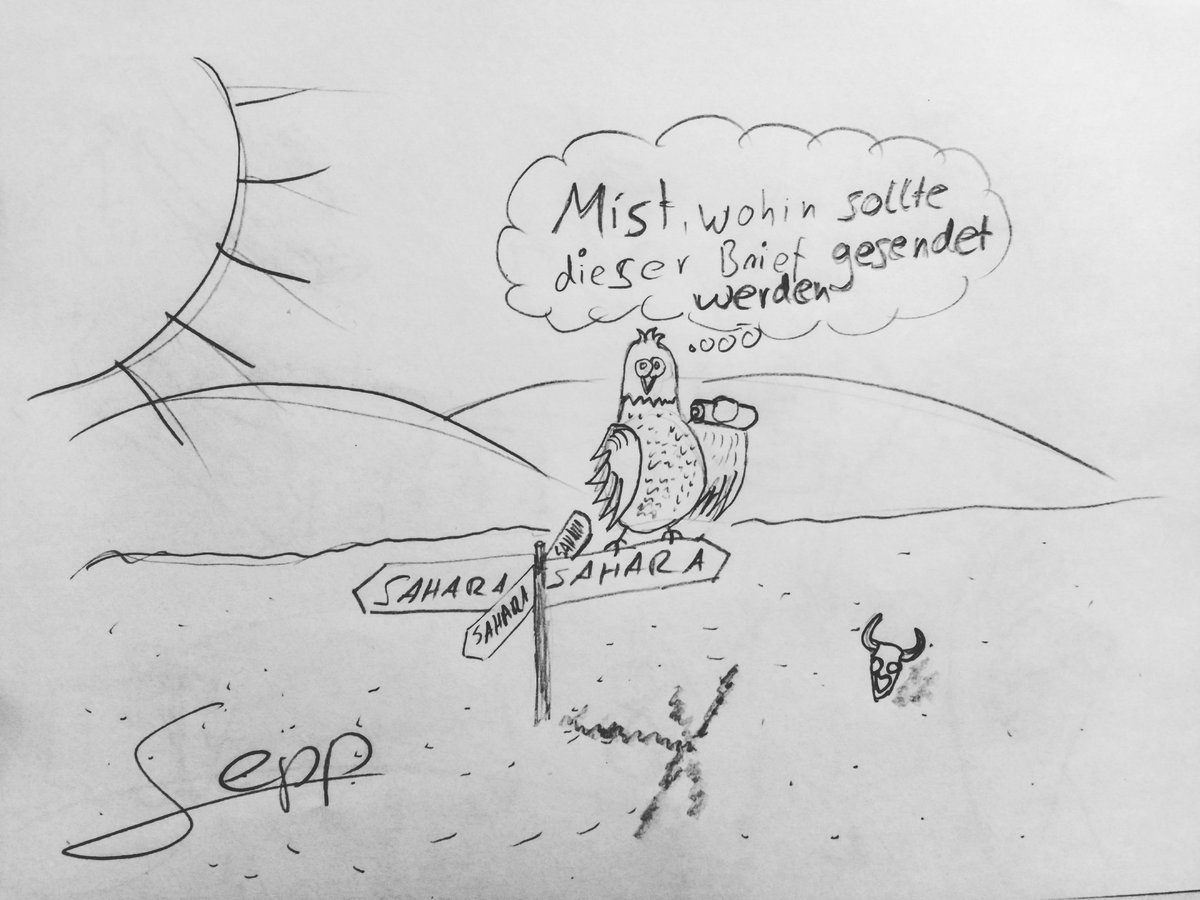 Mist, wohin sollte
dieser Brief gesendet
werden
SAHARA
SAHARA
SAHARA
SAHARA
Sepp